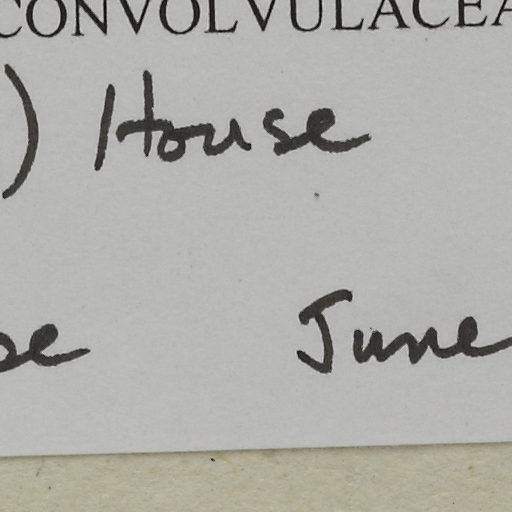 CONVOLVULACEA
) House
se June